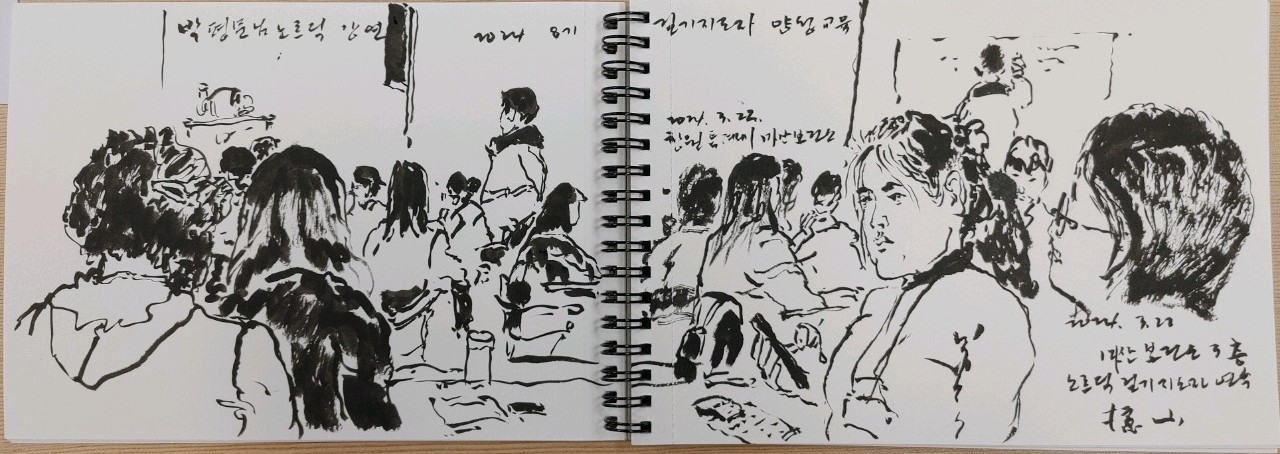 박평문님 노르딕 강연
2024 8기
걷기지도자 양성교육
2024. 3. 22.
마산보건소
2024. 3. 22
마산보건소 3층
노르딕 걷기지도자 연수
山